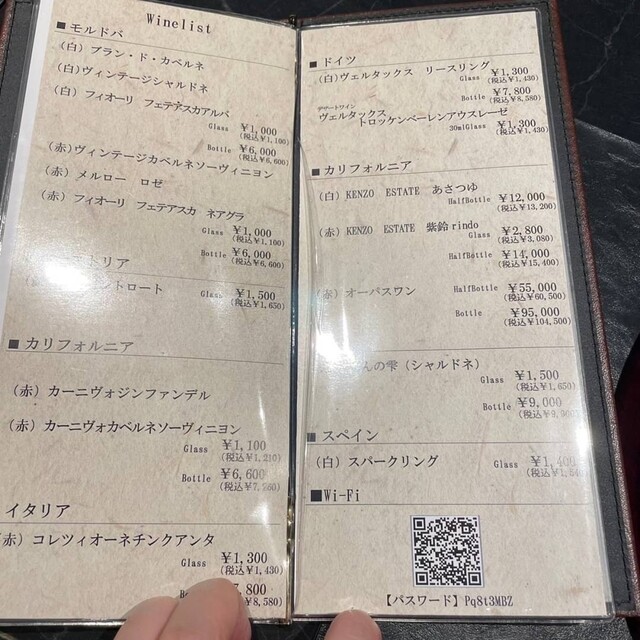 Winelist
■モルドバ
(白) ブラン・ド・カベルネ
(白)ヴィンテージシャルドネ
(白) フィオーリ フェテアスカアルバ
Glass ¥1,000
(税込¥1,100)
Bottle ¥6,000
(税込¥6,600)
(赤)ヴィンテージカベルネソーヴィニヨン
(赤) メルロー ロゼ
(赤) フィオーリ フェテアスカ ネアグラ
Glass ¥1,000
(税込¥1,100)
Bottle ¥6,000
(税込¥6,600)
トリア
ントロート Glass ¥1,500
(税込¥1,650)
■カリフォルニア
(赤) カーニヴォジンファンデル
(赤) カーニヴォカベルネソーヴィニヨン
Glass ¥1,100
(税込¥1,210)
Bottle ¥6,600
(税込¥7,760)
イタリア
(赤) コレツィオーネチンクアンタ
Glass ¥1,300
(税込¥1,430)
7,800
¥8,580)
■ドイツ
(白)ヴェルタックス リースリング
Glass ¥1,300
(税込¥1,430)
Bottle ¥7,800
(税込¥8,580)
デザートワイン
ヴェルタックス
トロッケンベーレンアウスレーゼ
30mlGlass ¥1,300
(税込¥1,430)
■カリフォルニア
(白) KENZO ESTATE あさつゆ
HalfBottle ¥12,000
(税込¥13,200)
(赤) KENZO ESTATE 紫鈴rindo
Glass ¥2,800
(税込¥3,080)
HalfBottle ¥14,000
(税込¥15,400)
(赤) オーパスワン HalfBottle ¥55,000
(税込¥60,500)
Bottle ¥95,000
(税込¥104,500)
んの雫 (シャルドネ)
Glass ¥1,500
(税込¥1,650)
Bottle ¥9,000
(税込¥9,900)
■スペイン
(白) スパークリング Glass ¥1,400
(税込¥1,540)
■Wi-Fi
【パスワード】Pq8t3MBZ